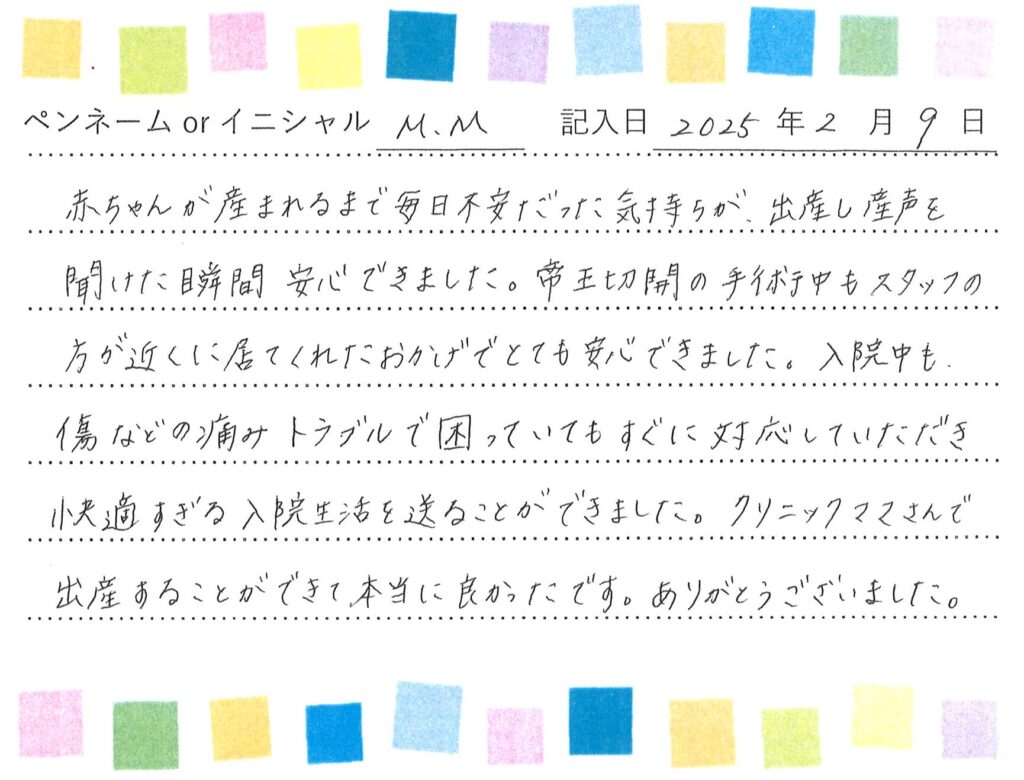 ペンネーム or イニシャル M.M 記入日 2025 年 2 月 9 日
赤ちゃんが産まれるまで毎日不安だった気持ちが、出産し産声を
聞けた瞬間 安心できました。帝王切開の手術中もスタッフの
方が近くに居てくれたおかげでとても安心できました。入院中も、
傷などの痛みトラブルで困っていてもすぐに対応していただき
快適すぎる入院生活を送ることができました。クリニックママさんで
出産することができて、本当に良かったです。ありがとうございました。